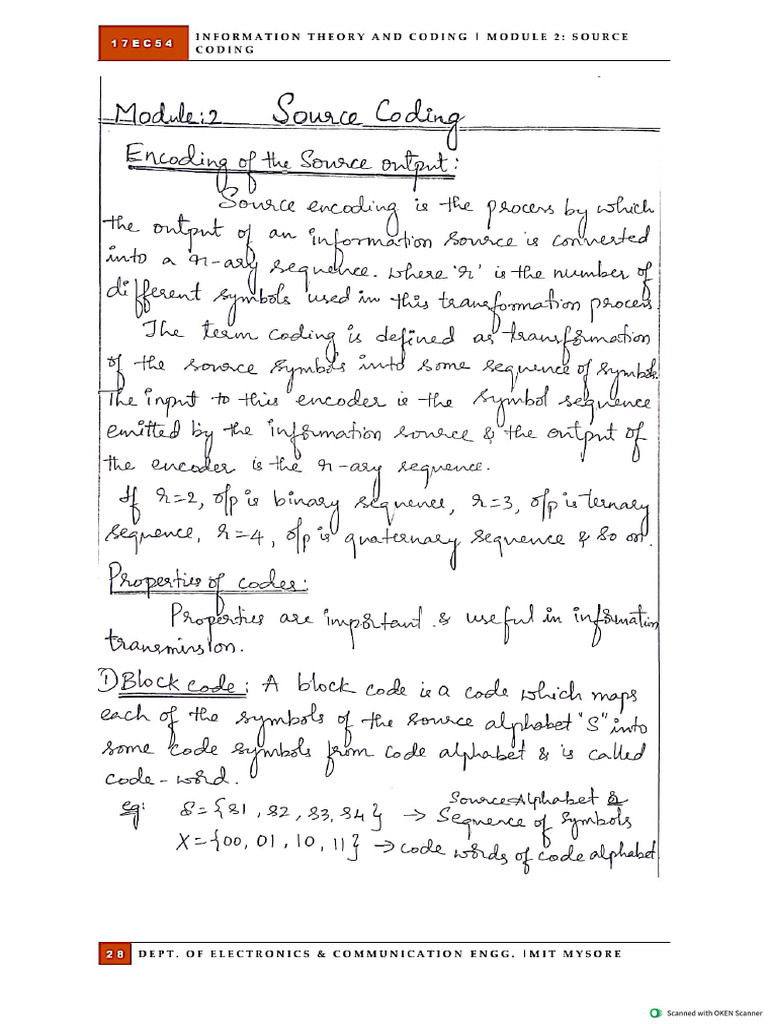 17EC54
INFORMATION THEORY AND CODING | MODULE 2: SOURCE
CODING
Module:2 Source Coding
Encoding of the Source output:
Source encoding is the process by which
the output of an information source is converted
into a r-ary sequence. where 'r' is the number of
different symbols used in this transformation process
The term coding is defined as transformation
of the source symbols into some sequence of symbols.
The input to this encoder is the symbol sequence
emitted by the information source & the output of
the encoder is the r-ary sequence.
If r=2, o/p is binary sequence, r=3, o/p is ternary
sequence, r=4, o/p is quaternary sequence & so on.
Properties of codes:
Properties are important & useful in information
transmission.
1) Block code: A block code is a code which maps
each of the symbols of the source alphabet "S" into
some code symbols from code alphabet & is called
code-word.
eg: S={S1, S2, S3, S4} → Source Alphabet &
Sequence of Symbols
X={00, 01, 10, 11} → code words of code alphabet
28 DEPT. OF ELECTRONICS & COMMUNICATION ENGG. |MIT MYSORE
Scanned with OKEN Scanner